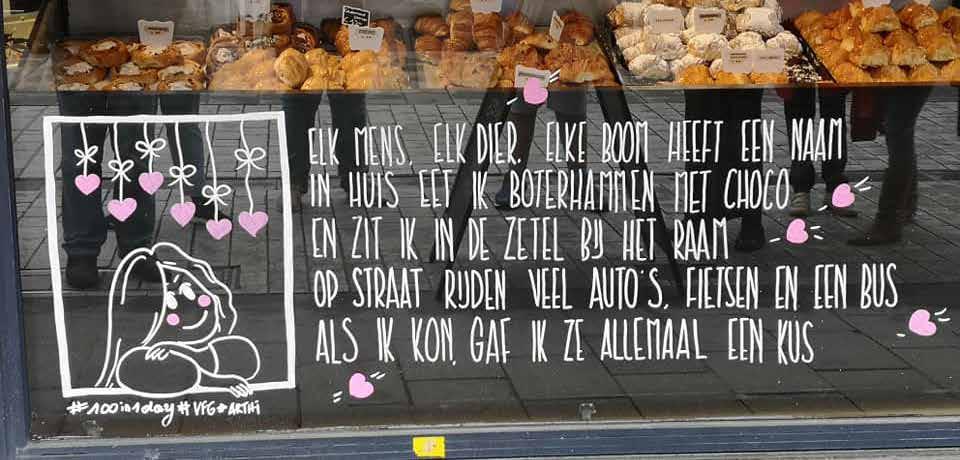 ELK MENS, ELK DIER, ELKE BOOM HEEFT EEN NAAM
IN HUIS EET IK BOTERHAMMEN MET CHOCO
EN ZIT IK IN DE ZETEL BIJ HET RAAM
OP STRAAT RIJDEN VEEL AUTO'S, FIETSEN EN EEN BUS
ALS IK KON, GAF IK ZE ALLEMAAL EEN KUS
#100in1day #VFG #ARTHI